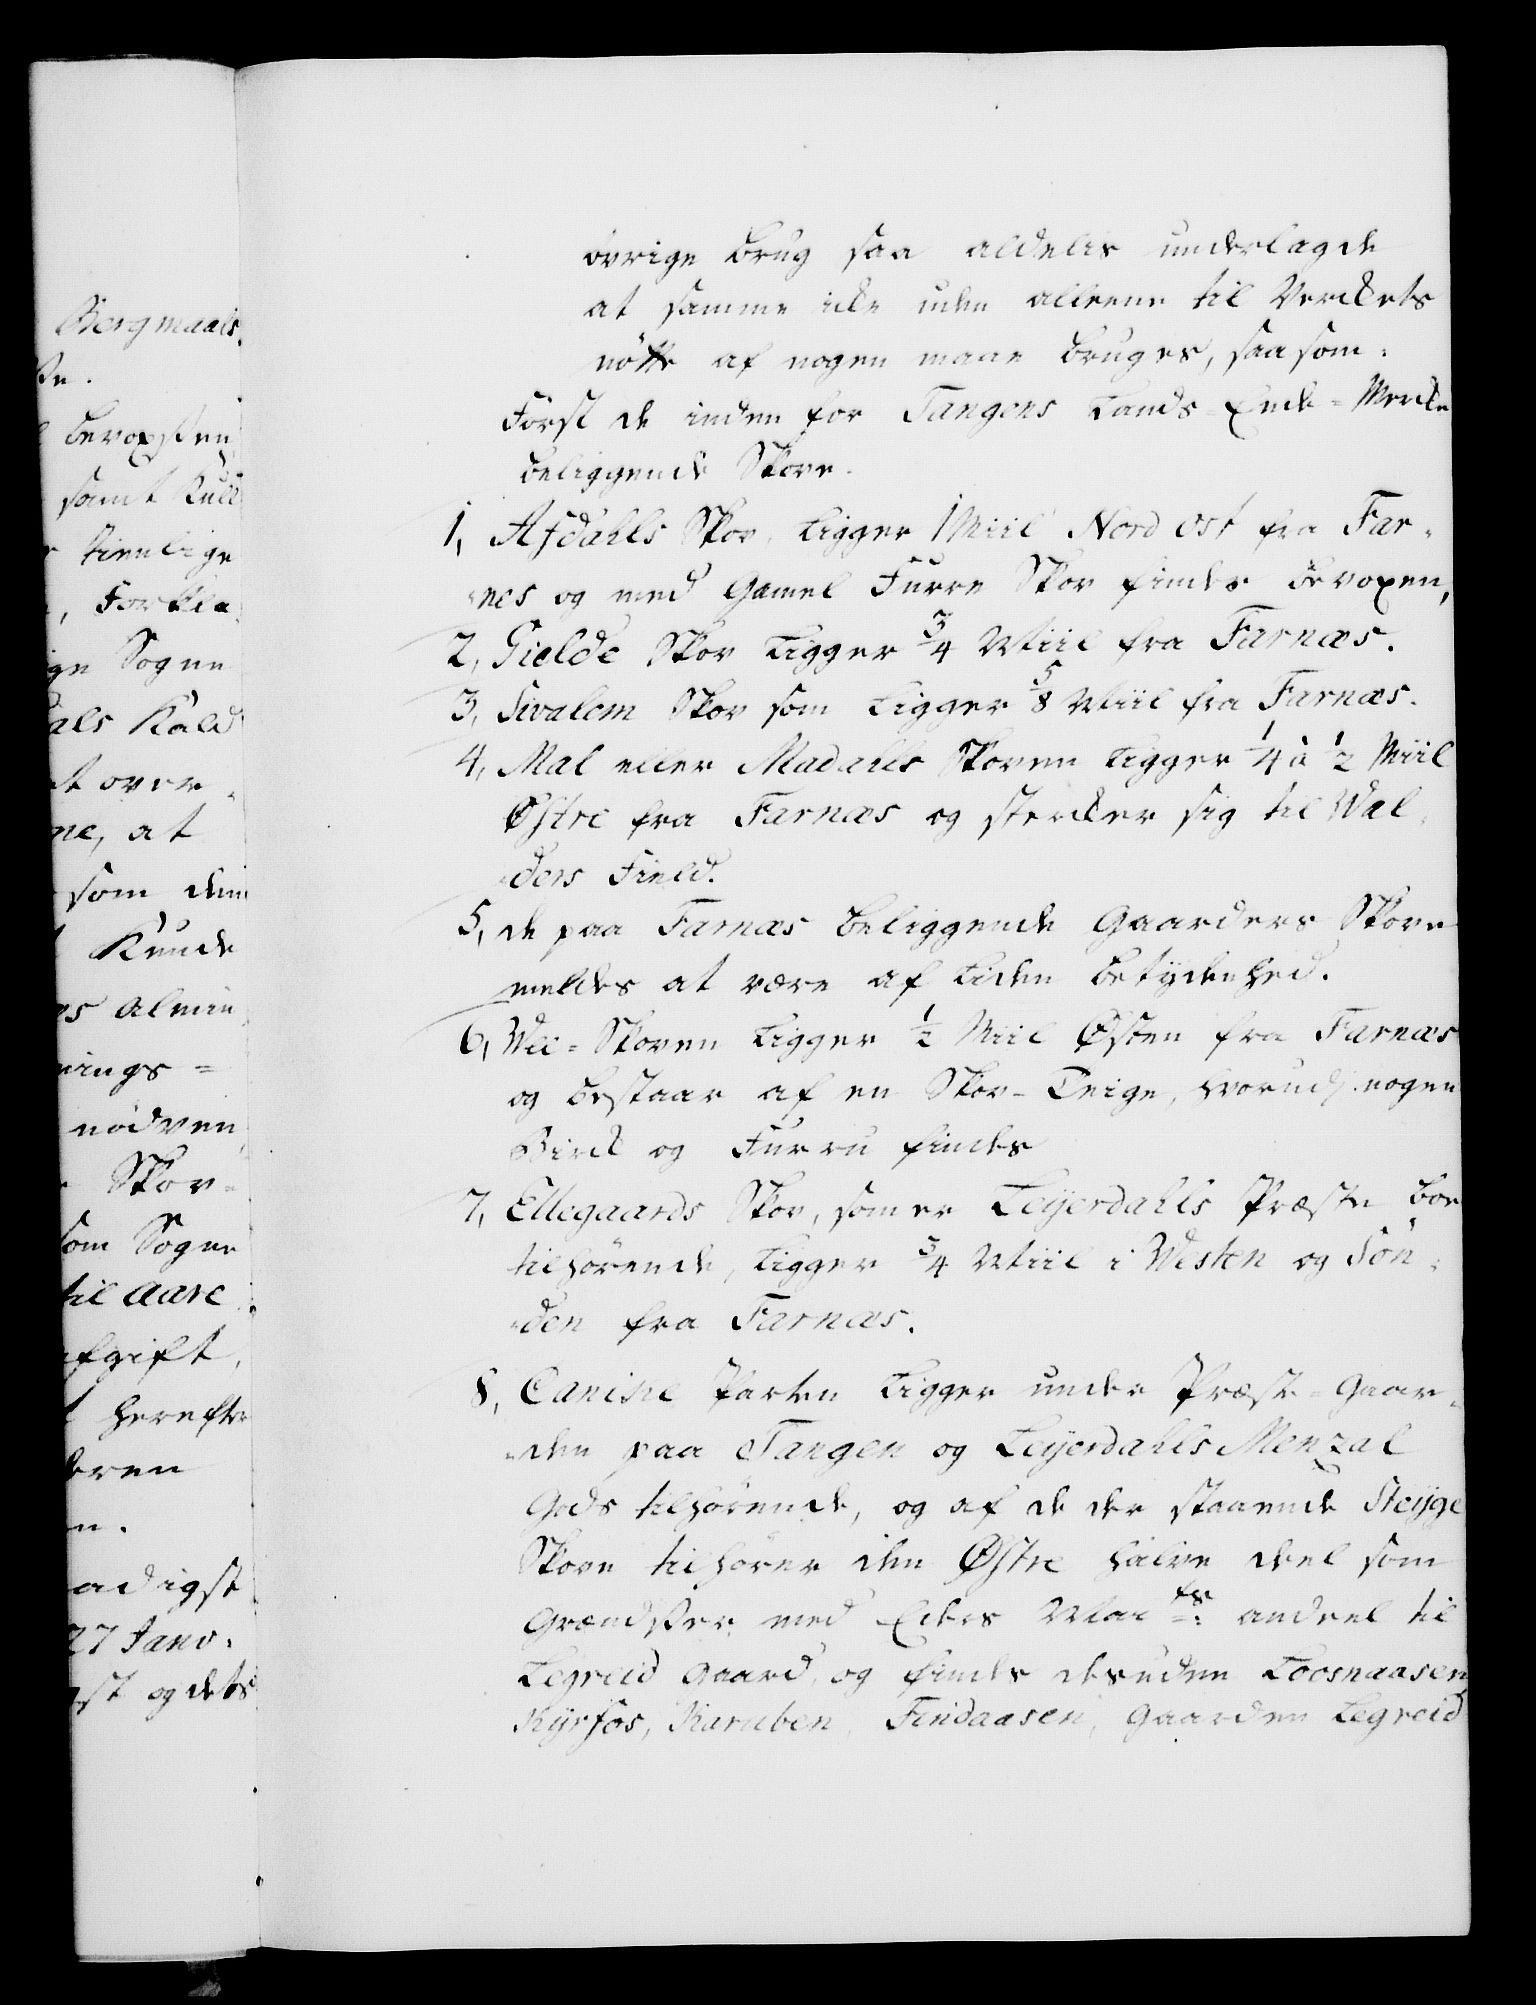 Bergmaals
bevoxsten
samt Kull
tienlige
, Forkla
ige Sogne
als Kald
at over
ne, at
som dem
Kunde
es almin
nings =
nödven
Skov-
som Sogne
til Aare
afgift,
t herefter
n.
aadigst
27 Janv:
st og dets
övrige brug saa aldelis underlagde
at samme icke uden alleene til Verckets
nötte af nogen maae bruges, saasom:
Först de inden for Tangens Lands-Ende-Mercke
beliggende Skove.
1, Afdahls Skov, Ligger 1 Miil Nord ost fra Far-
-nes og med Gamel Furre Skov findes bevoxen,
2, Gielde Skov Ligger 3/4 Miil fra Farnæs.
3, Sivalem Skov som Ligger 5/8 Miil fra Farnæs.
4, Mal eller Madahls Skoven Ligger 1/4 à 1/2 Miil
Østre fra Farnæs og strecker sig til Wal-
-ders Field.
5, de paa Farnæs beliggende Gaarders Skove
meldes at være af Liden betydenhed.
6, Vee-Skoven Ligger 1/2 Miil Østen fra Farnæs
og bestaar af en Skov-Teige, hvorudj nogen
Birck og Furru findes
7, Ellegaards Skov, som er Leyerdahls Præste boe
tilhörende, Ligger 3/4 Miil i Westen og Sön-
-den fra Farnæs.
8, Canike Parten Ligger under Præste-Gaar-
-den paa Tangen og Leyerdahls Menzal
Gods tilhörende, og af de der staaende Steyge
Skove tilhörer den Østre halve deel som
Grændsser med Eders Mai ts: andeel til
Legreid Gaard, og findes desuden Loosnaasen
Kyrfos, Karuben, Findaasen, Gaarden Legreid